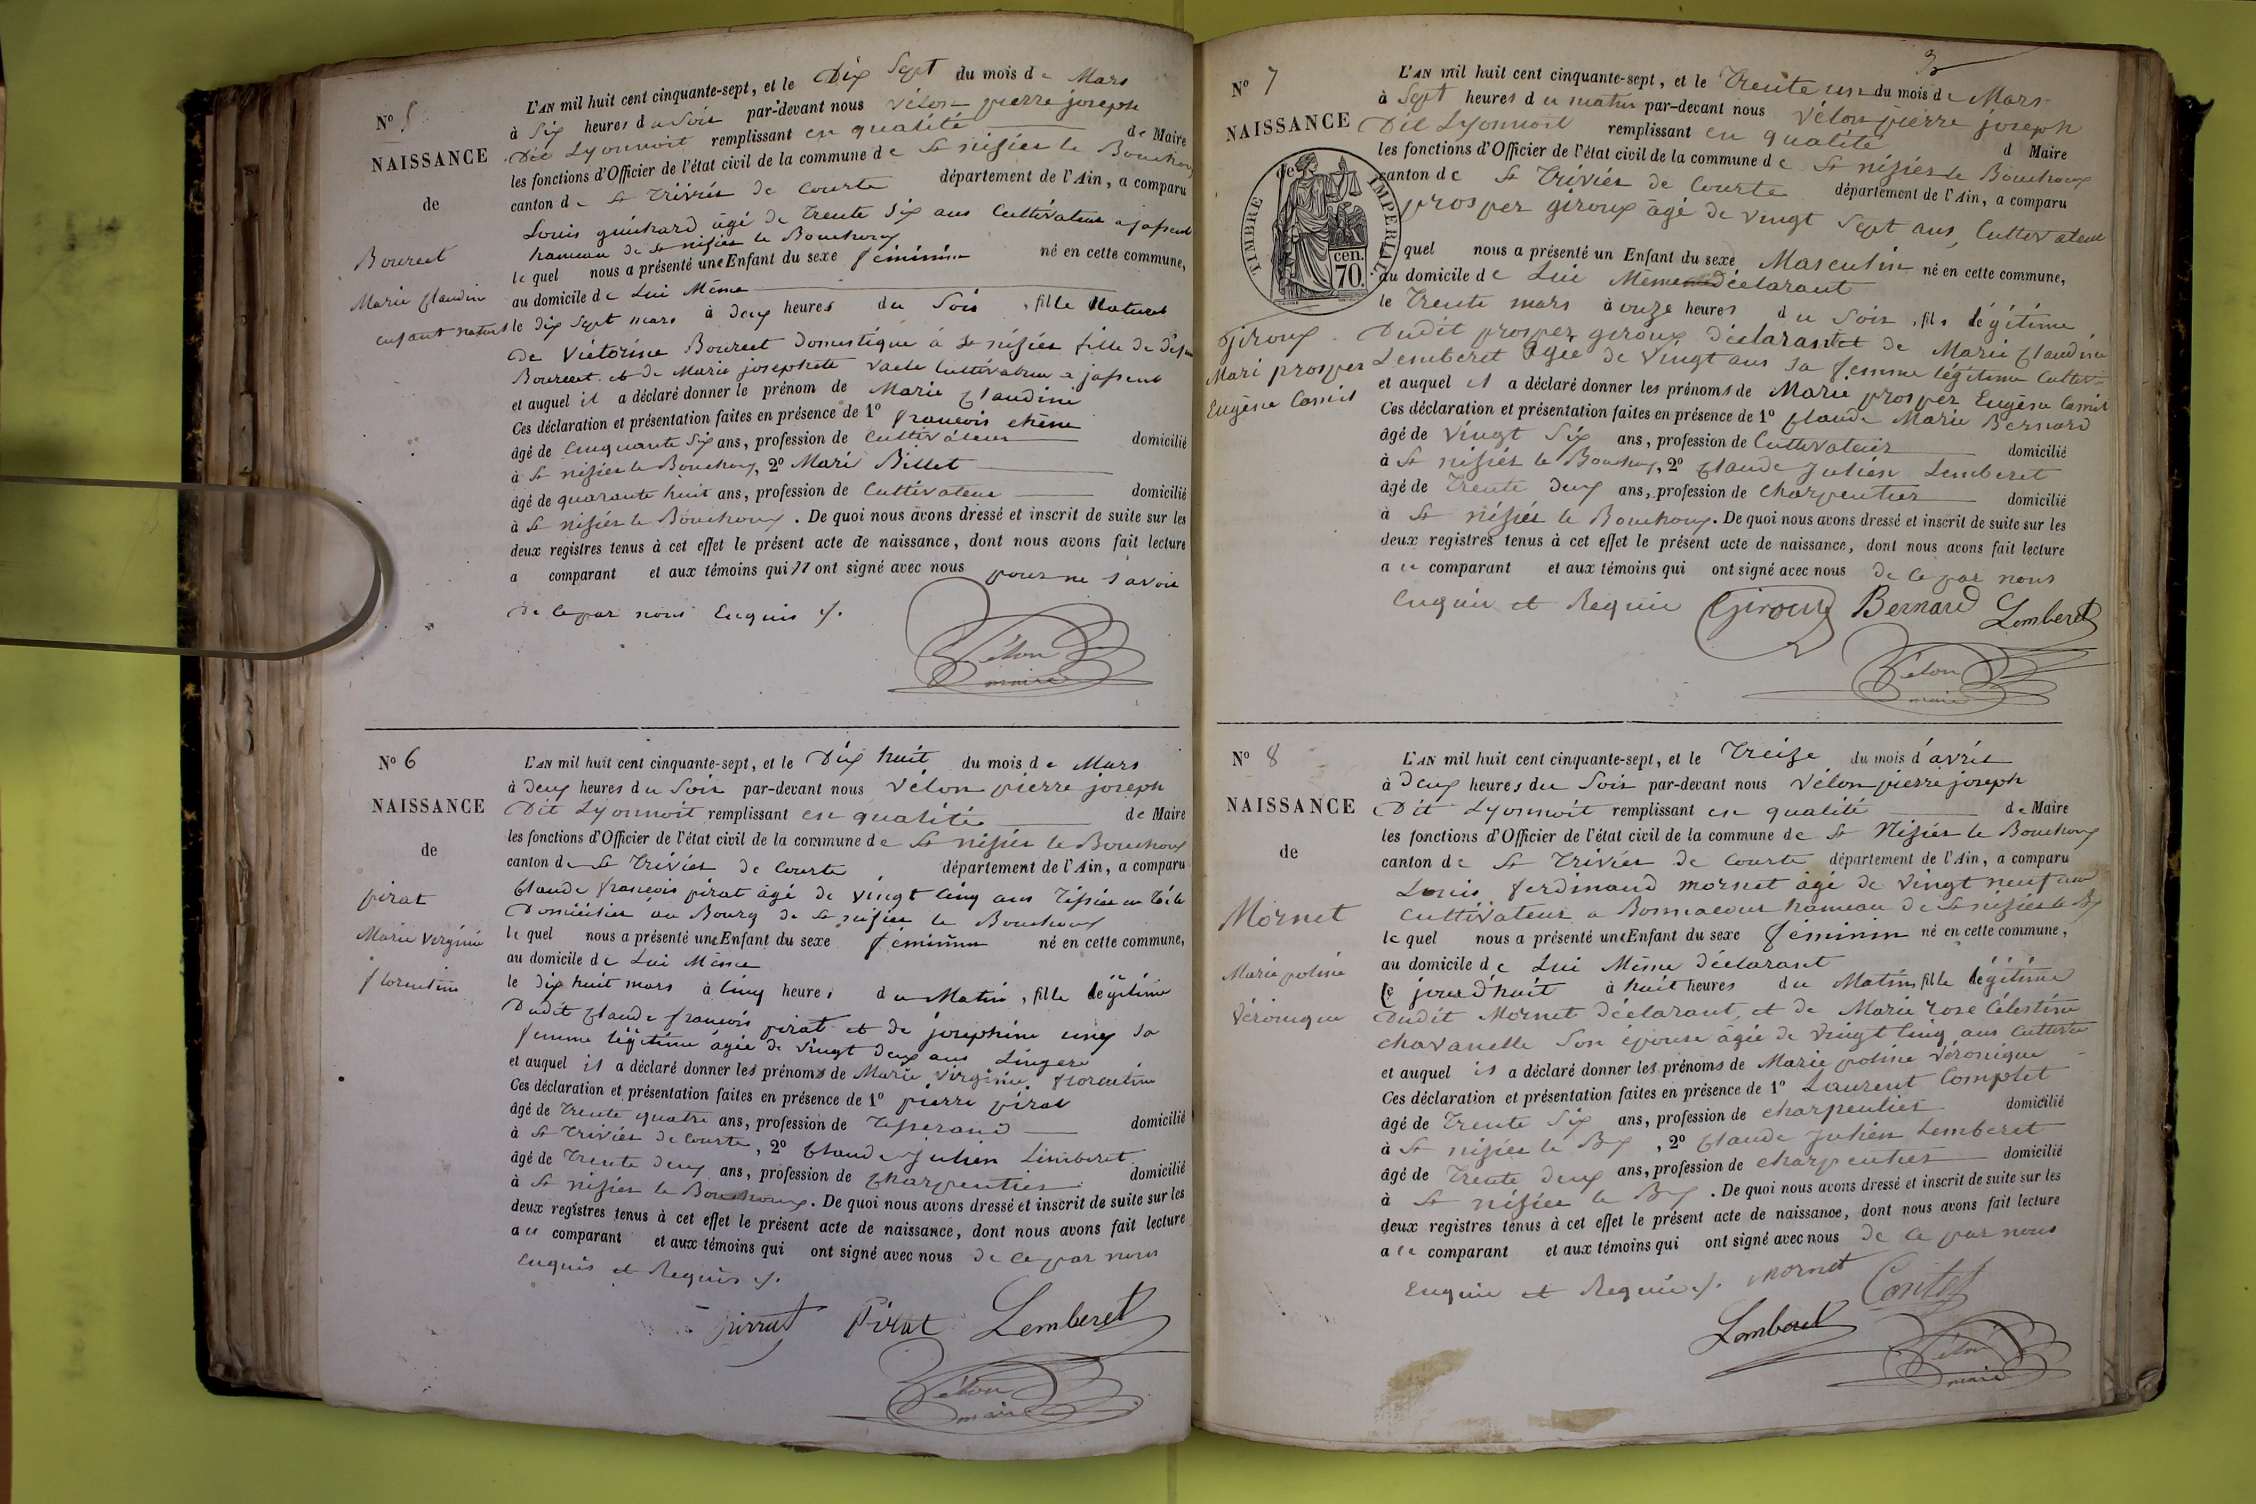 Nº 5
NAISSANCE
de
Bourect
Marie Claudin
enfant naturel
L'AN mil huit cent cinquante-sept, et le Dix Sept du mois de Mars
à Six heures du Soir par-devant nous Vélon pierre joseph
Dit Lyonnoit remplissant en qualité de Maire
les fonctions d'Officier de l'état civil de la commune de St nisier le Bouchoux
canton de St Trivier de Courte département de l'Ain, a comparu
Louis guichard âgé de Trente Six ans Cultivateur a
hameau de St nisier le Bouchoux
lequel nous a présenté une Enfant du sexe féminin né en cette commune,
au domicile de Lui Même
le dix Sept mars à deux heures du Soir, fille Naturel
de Victorine Bourect Domestique à St nisier fille de
Bourect et de Marie josephete Cultivatrice a
et auquel il a déclaré donner le prénom de Marie Claudine
Ces déclaration et présentation faites en présence de 1º françois chêne
âgé de Cinquante Six ans, profession de Cultivateur domicilié
à St nisier le Bouchoux, 2º Marie Billet
âgé de quarante huit ans, profession de Cultivateur domicilié
à St nisier le Bouchoux. De quoi nous avons dressé et inscrit de suite sur les
deux registres tenus à cet effet le présent acte de naissance, dont nous avons fait lecture
a comparant et aux témoins qui n ont signé avec nous pour ne Savoir
de Ce par nous Enquis
Vélon
maire
Nº 6
NAISSANCE
de
pirat
Marie Virginie
florentine
L'AN mil huit cent cinquante-sept, et le Dix huit du mois de Mars
à deux heures du Soir par-devant nous Vélon pierre joseph
Dit Lyonnoit remplissant en qualité de Maire
les fonctions d'Officier de l'état civil de la commune de St nisier le Bouchoux
canton de St Trivier de Courte département de l'Ain, a comparu
Claude françois pirat âgé de vingt Cinq ans Tissier en Toile
Domicilier au Bourg de St nisier le Bouchoux
lequel nous a présenté une Enfant du sexe féminin né en cette commune,
au domicile de Lui Même
le dix huit mars à Cinq heures du Matin, fille légitime
Dudit Claude françois pirat et de josephine Sa
femme légitime âgée de Vingt deux ans Lingere
et auquel il a déclaré donner les prénoms de Marie Virginie florentine
Ces déclaration et présentation faites en présence de 1º pierre pirat
âgé de Trente quatre ans, profession de Tisserand domicilié
à St Trivier de Courte, 2º Claude julien Lemberet
âgé de Trente deux ans, profession de Charpentier domicilié
à St nisier le Bouchoux. De quoi nous avons dressé et inscrit de suite sur les
deux registres tenus à cet effet le présent acte de naissance, dont nous avons fait lecture
au comparant et aux témoins qui ont signé avec nous de Ce par nous
Enquis et Requis
Pirat Lemberet
Vélon
maire
3
Nº 7
NAISSANCE
TIMBRE IMPERIAL
70 cen.
Giroux
Mari prosper
Eugène Camil
L'AN mil huit cent cinquante-sept, et le Trente un du mois de Mars
à Sept heures du matin par-devant nous Vélon pierre joseph
Dit Lyonnoit remplissant en qualité d Maire
les fonctions d'Officier de l'état civil de la commune de St nisier le Bouchoux
canton de St Trivier de Courte département de l'Ain, a comparu
prosper giroux âgé de vingt Sept ans, Cultivateur
quel nous a présenté un Enfant du sexe Masculin né en cette commune,
au domicile de Lui Même Déclarant
le Trente mars à onze heures du Soir, fils légitime
Dudit prosper giroux déclarant et de Marie Claudine
Lemberet âgée de Vingt ans Sa femme légitime
et auquel il a déclaré donner les prénoms de Marie prosper Eugène Camil
Ces déclaration et présentation faites en présence de 1º Claude Marie Bernard
âgé de Vingt Six ans, profession de Cultivateur domicilié
à St nisier le Bouchoux, 2º Claude julien Lemberet
âgé de Trente deux ans, profession de Charpentier domicilié
à St nisier le Bouchoux. De quoi nous avons dressé et inscrit de suite sur les
deux registres tenus à cet effet le présent acte de naissance, dont nous avons fait lecture
au comparant et aux témoins qui ont signé avec nous de Ce par nous
Enquis et Requis Giroux Bernard Lemberet
Vélon
maire
Nº 8
NAISSANCE
de
Mornet
Marie poline
Véronique
L'AN mil huit cent cinquante-sept, et le Treize du mois d'avril
à Deux heures du Soir par-devant nous Vélon pierre joseph
Dit Lyonnoit remplissant en qualité de Maire
les fonctions d'Officier de l'état civil de la commune de St Nisier le Bouchoux
canton de St Trivier de Courte département de l'Ain, a comparu
Louis ferdinand mornet âgé de Vingt neuf ans
Cultivateur a hameau de St nisier le Bx
lequel nous a présenté une Enfant du sexe feminin né en cette commune,
au domicile de Lui Même Déclarant
Ce jourd'huit à huit heures du Matin, fille légitime
Dudit Mornet Déclarant, et de Marie rose Célestine
chavanelle Son épouse âgée de Vingt Cinq ans
et auquel il a déclaré donner les prénoms de Marie poline Véronique
Ces déclaration et présentation faites en présence de 1º Laurent Comptet
âgé de Trente Six ans, profession de charpentier domicilié
à St nisier le Bx, 2º Claude julien Lemberet
âgé de Trente deux ans, profession de charpentier domicilié
à St nisier le Bx. De quoi nous avons dressé et inscrit de suite sur les
deux registres tenus à cet effet le présent acte de naissance, dont nous avons fait lecture
au comparant et aux témoins qui ont signé avec nous de Ce par nous
Enquis et Requis Mornet
Lemberet
Vélon
maire